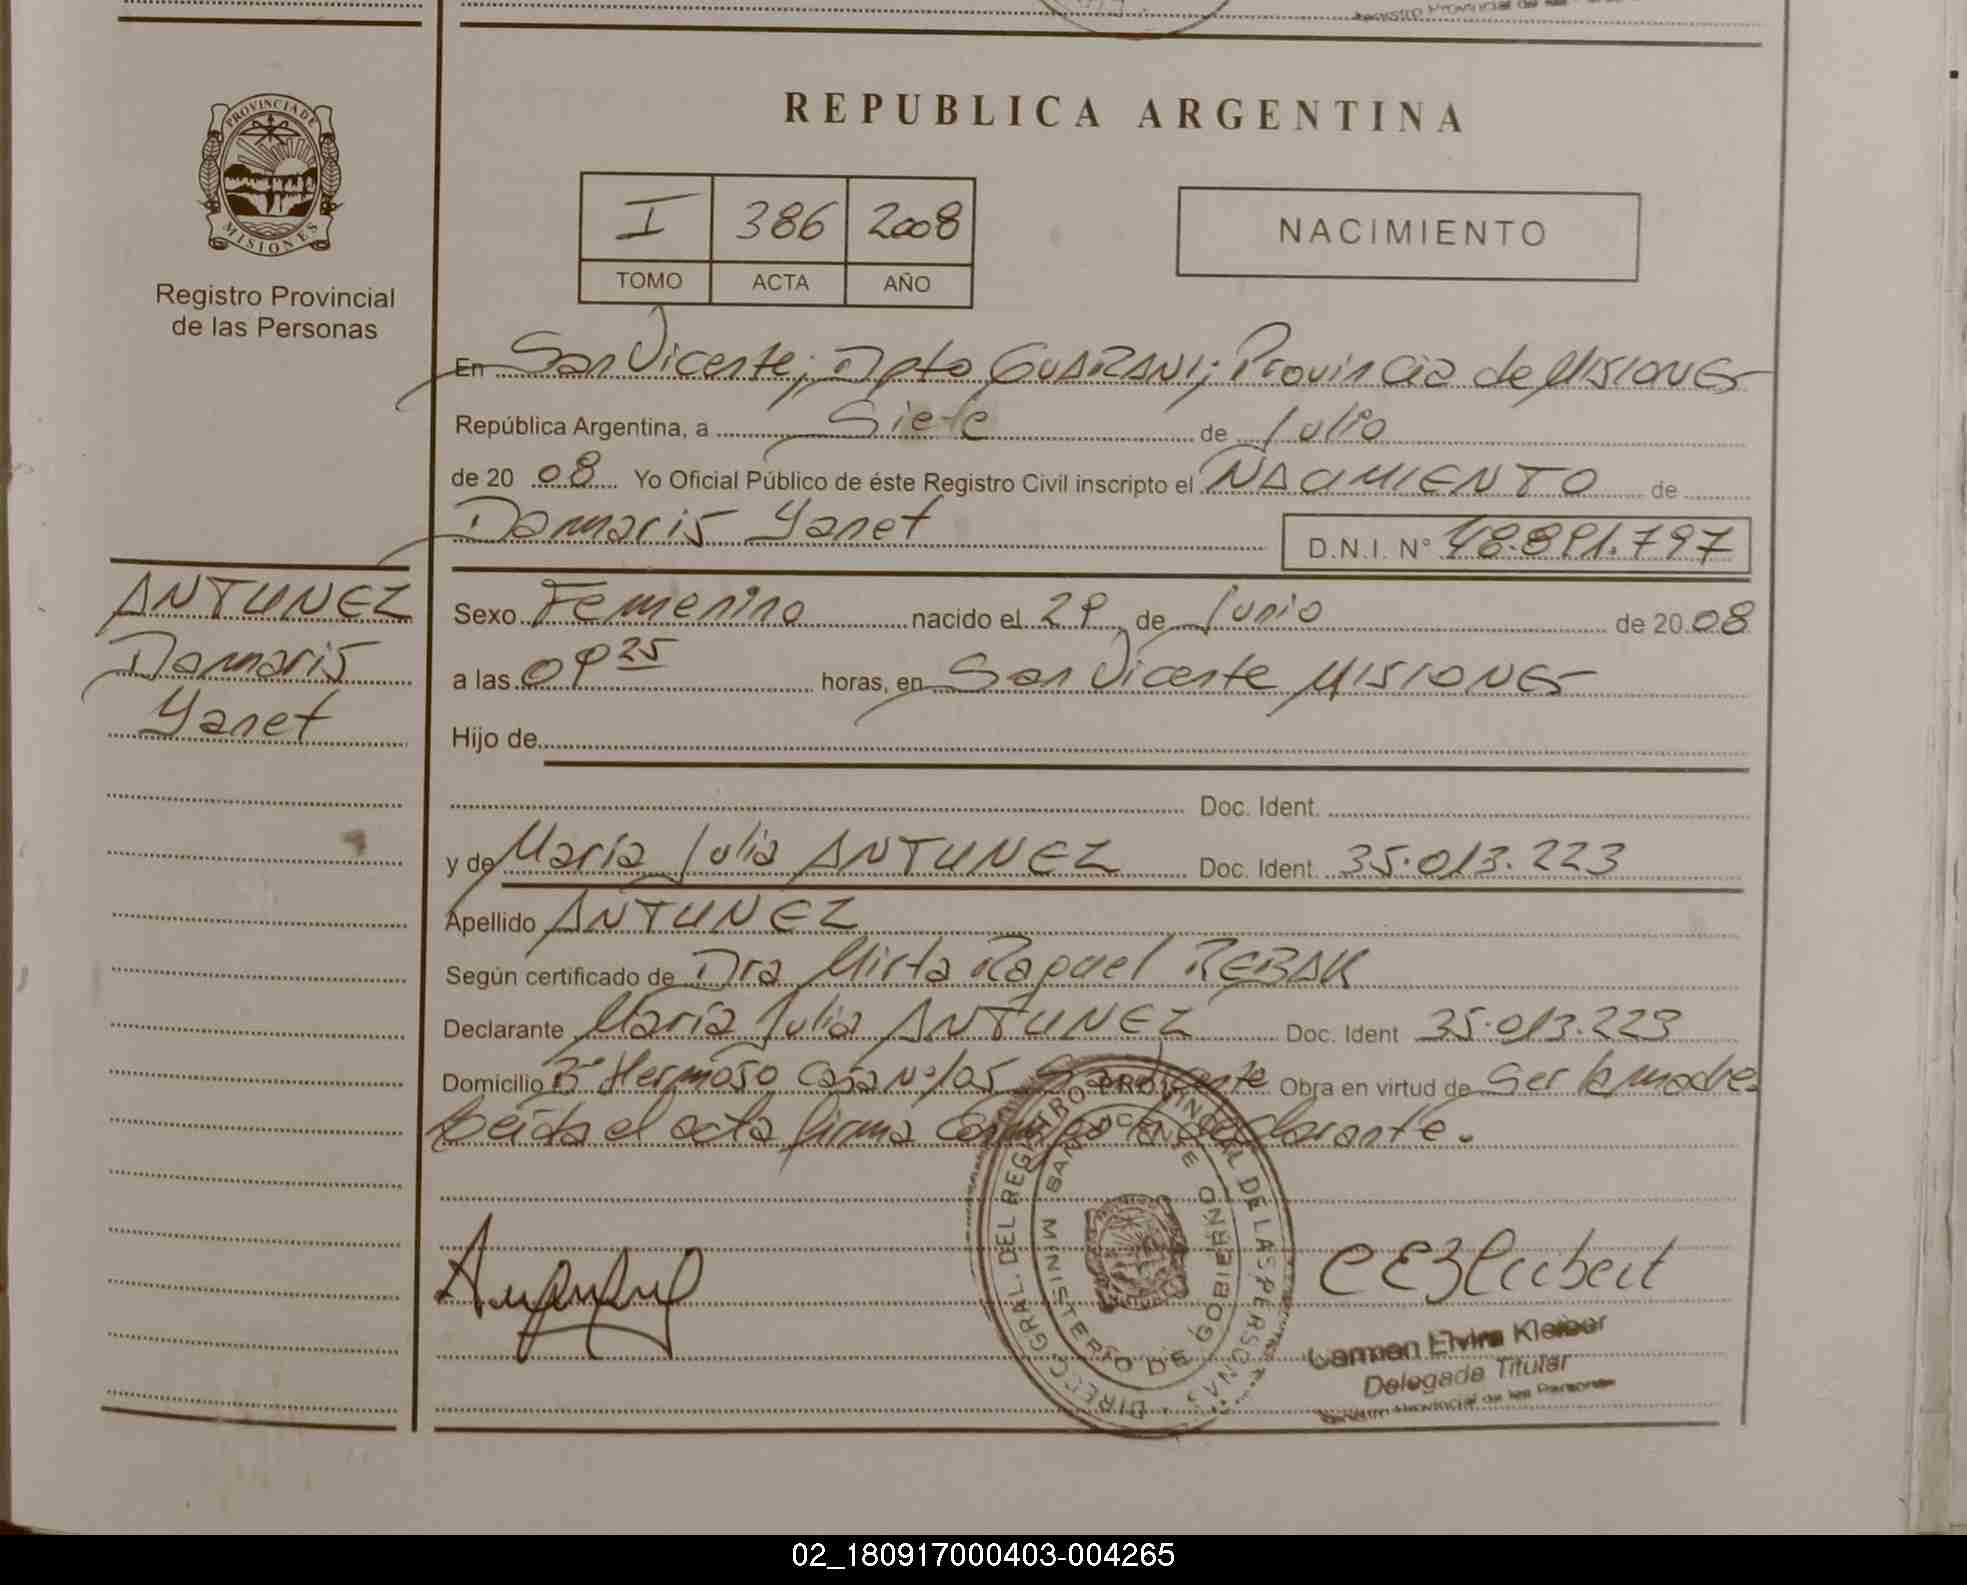 PROVINCIA DE
MISIONES
Registro Provincial
de las Personas
REPUBLICA ARGENTINA
I 386 2008
TOMO ACTA AÑO
NACIMIENTO
En San Vicente; Dpto GUARANI; Provincia de MISIONES
República Argentina, a Siete de Julio
de 20 08 Yo Oficial Público de éste Registro Civil inscripto el NACIMIENTO de
Damaris Yanet D.N.I. Nº 48.891.797
ANTUNEZ
Damaris
Yanet
Sexo Femenino nacido el 29 de Junio de 20 08
a las 09 25 horas, en San Vicente MISIONES
Hijo de
Doc. Ident.
y de María Julia ANTUNEZ Doc. Ident. 35.013.223
Apellido ANTUNEZ
Según certificado de Dra Mirta Raquel REBAK
Declarante María Julia ANTUNEZ Doc. Ident 35.013.223
Domicilio Bº Hermoso Casa Nº 105 San Vicente Obra en virtud de Ser la madre
Leída el acta firma conmigo la declarante.
DIRECC. GRAL. DEL REGISTRO PROVINCIAL DE LAS PERSONAS
SAN VICENTE
MINISTERIO DE GOBIERNO
Carmen Elvira Kleiber
Delegada Titular
Registro Provincial de las Personas
02_180917000403-004265